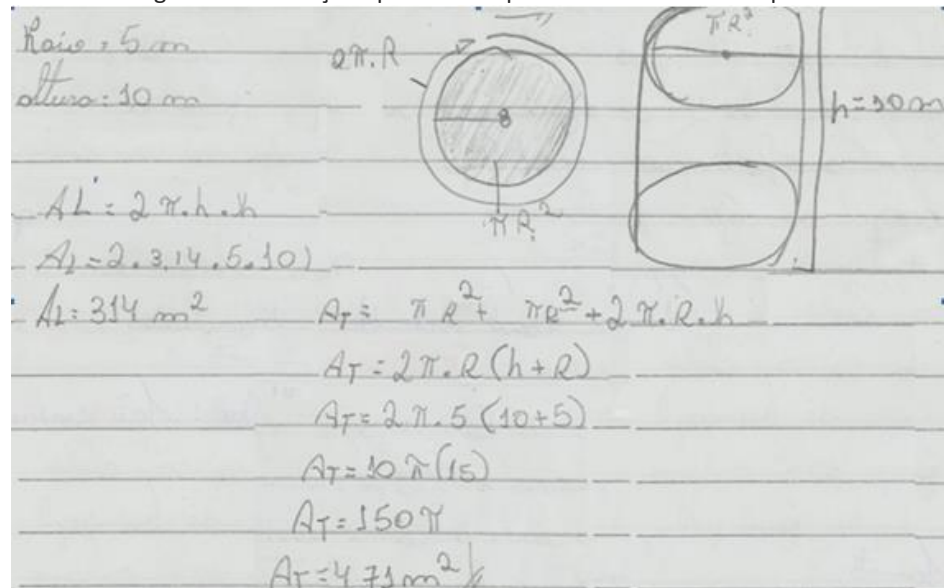 Raio = 5 m
altura: 10 m
2π.R
πR²
πR²
h=10 m
AL = 2π.h.h
AL = 2.3,14.5.10)
AL = 314 m²
AT = πR² + πR² + 2π.R.h
AT = 2π.R(h+R)
AT = 2π.5(10+5)
AT = 10π(15)
AT = 150π
AT = 471 m²